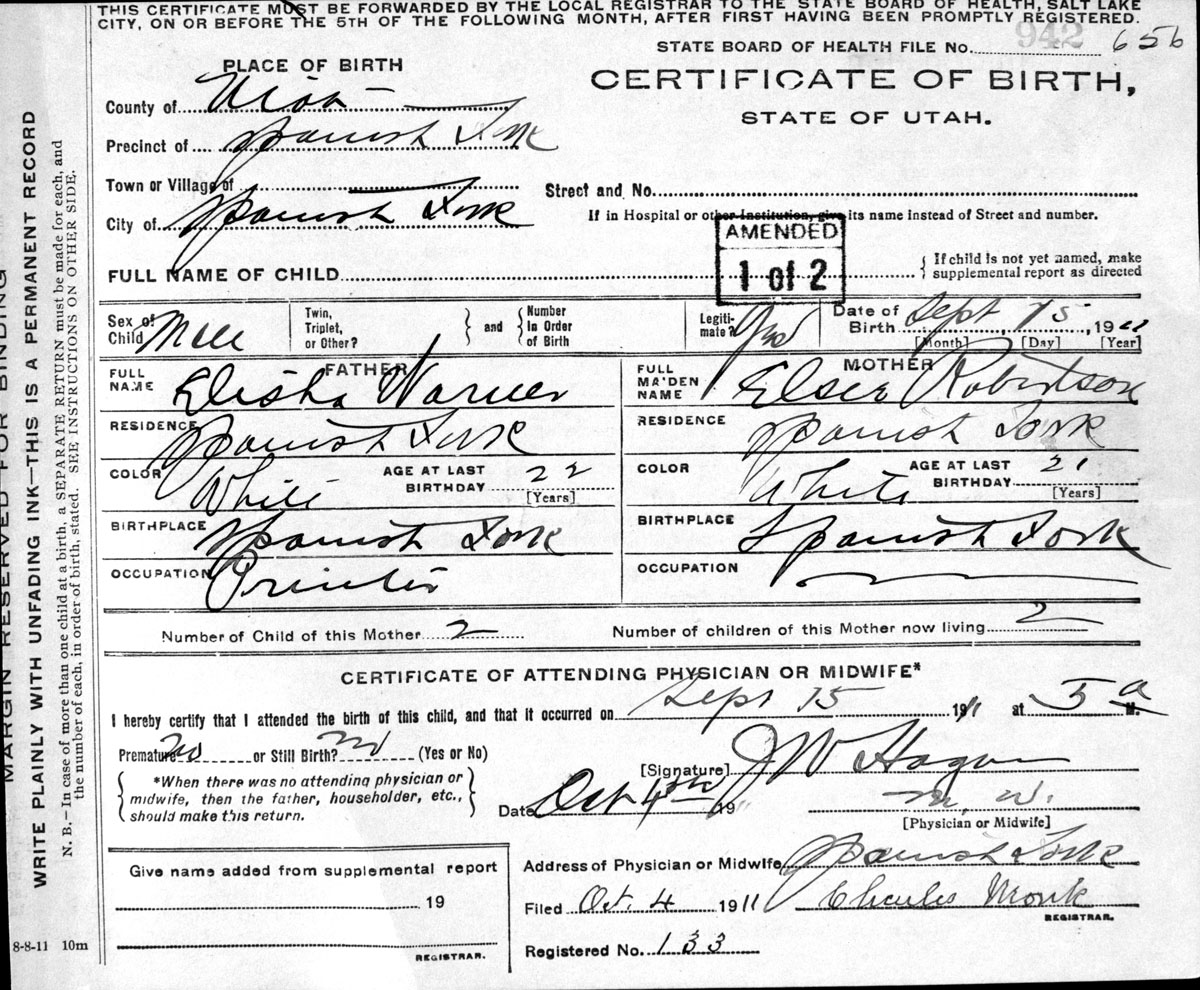 THIS CERTIFICATE MUST BE FORWARDED BY THE LOCAL REGISTRAR TO THE STATE BOARD OF HEALTH, SALT LAKE
CITY, ON OR BEFORE THE 5TH OF THE FOLLOWING MONTH, AFTER FIRST HAVING BEEN PROMPTLY REGISTERED.
942
STATE BOARD OF HEALTH FILE No. 656
PLACE OF BIRTH
CERTIFICATE OF BIRTH,
STATE OF UTAH.
County of Utah
Precinct of Spanish Fork
Town or Village of
Street and No.
City of Spanish Fork
If in Hospital or other Institution, give its name instead of Street and number.
AMENDED
1 of 2
FULL NAME OF CHILD
If child is not yet named, make
supplemental report as directed
Sex of Child Male
Twin, Triplet, or Other?
and
Number in Order of Birth
Legitimate?
Date of Birth Sept 15, 1911
[Month] [Day] [Year]
FATHER
FULL NAME Elisha Warner
RESIDENCE Spanish Fork
COLOR White AGE AT LAST BIRTHDAY 22
[Years]
BIRTHPLACE Spanish Fork
OCCUPATION Printer
MOTHER
FULL MAIDEN NAME Elsie Robertson
RESIDENCE Spanish Fork
COLOR White AGE AT LAST BIRTHDAY 21
[Years]
BIRTHPLACE Spanish Fork
OCCUPATION
Number of Child of this Mother 2 Number of children of this Mother now living 2
CERTIFICATE OF ATTENDING PHYSICIAN OR MIDWIFE*
I hereby certify that I attended the birth of this child, and that it occurred on Sept 15 1911 at 5 a M.
Premature No or Still Birth? No (Yes or No)
*When there was no attending physician or
midwife, then the father, householder, etc.,
should make this return.
[Signature] J W Hagan
Date Oct 4th 1911
M. D.
[Physician or Midwife]
Address of Physician or Midwife Spanish Fork
Filed Oct. 4 1911 Charles Monk
REGISTRAR.
Registered No. 133
Give name added from supplemental report
19
REGISTRAR.
8-8-11 10m
MARGIN RESERVED FOR BINDING
WRITE PLAINLY WITH UNFADING INK—THIS IS A PERMANENT RECORD
N. B.—In case of more than one child at a birth, a SEPARATE RETURN must be made for each, and
the number of each, in order of birth, stated. SEE INSTRUCTIONS ON OTHER SIDE.